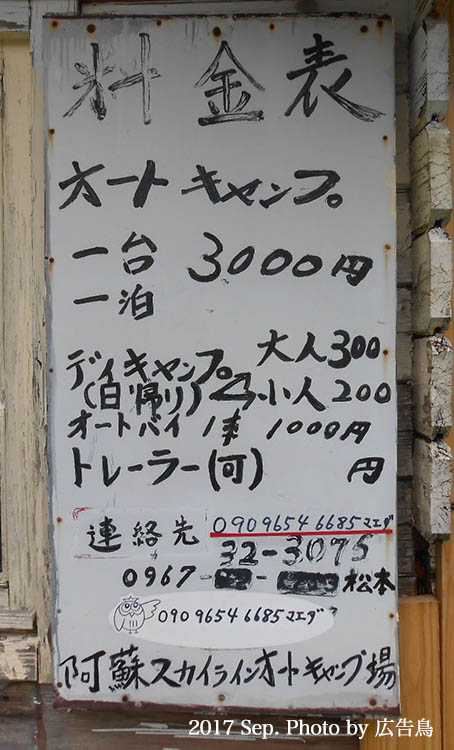 料金表
オートキャンプ
一台 3000円
一泊
デイキャンプ 大人300
(日帰り) 小人200
オートバイ 1車 1000円
トレーラー(可) 円
連絡先 09096546685マエダ
32-3075
0967- - 松本
09096546685マエダ
阿蘇スカイラインオートキャンプ場
2017 Sep. Photo by 広告鳥